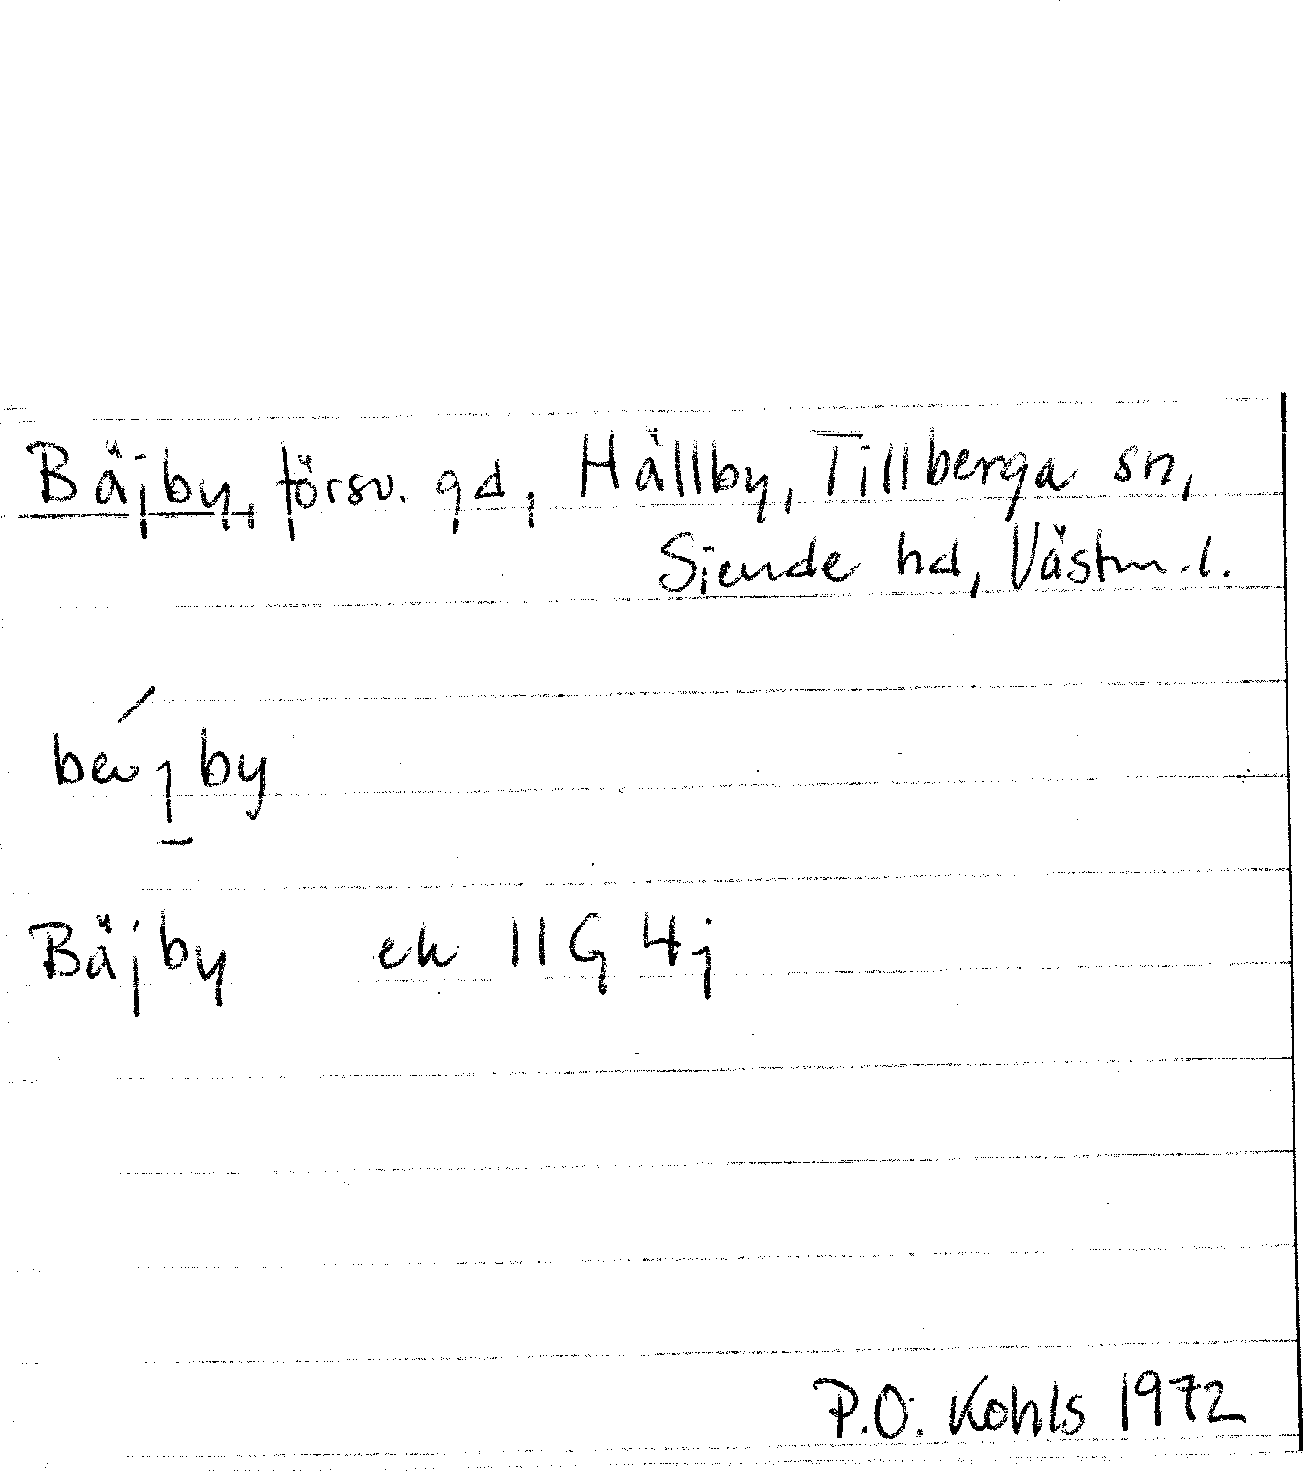 Bäjby, försv. gd, Hällby, Tillberga sn,
Siende hd, Västm. l.
bäjby
Bäjby ek 11G 4j
P.O. Kohls 1972